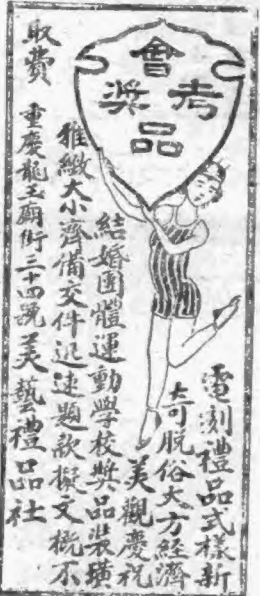 會考獎品
電刻禮品式樣新
奇脫俗大方經濟
美觀慶祝
結婚團體運動學校獎品裝璜
雅緻大小齊備交件迅速題款擬文概不
取費
重慶龍王廟街三十四號美藝禮品社